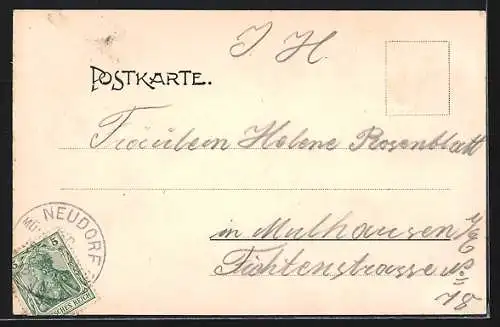 J. H.
POSTKARTE.
Fräulein Helene Rosenblatt
in Mulhausen i/E
Fichtenstrasse No
18
NEUDORF
5 5
DEUTSCHES REICH